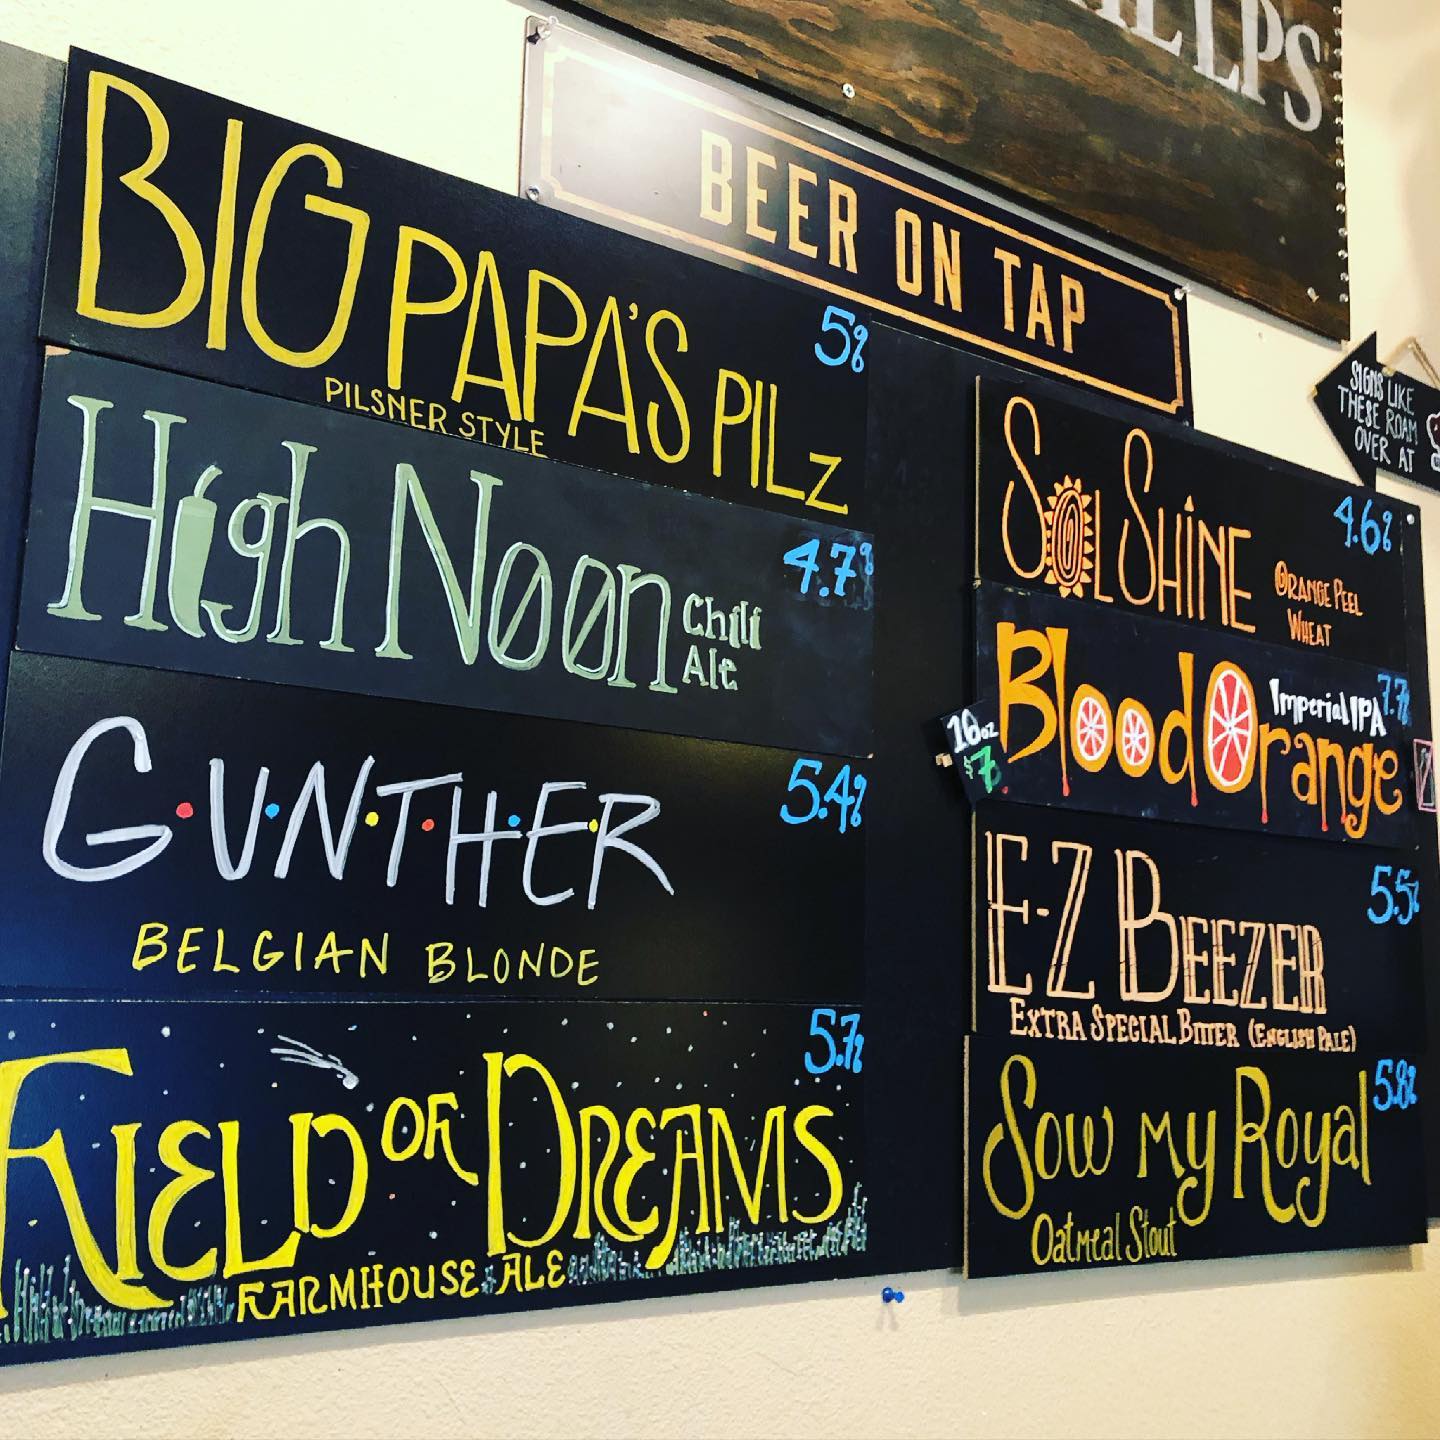 BEER ON TAP
BIG PAPA'S PILZ
PILSNER STYLE
5%
High Noon
Chili
Ale
4.7%
G·U·N·T·H·E·R
BELGIAN BLONDE
5.4%
FIELD OF DREAMS
FARMHOUSE ALE
5.7%
SOL SHINE
ORANGE PEEL
WHEAT
4.6%
Blood Orange
Imperial IPA
7.7%
10oz
$7
E-Z BEEZER
EXTRA SPECIAL BITTER (ENGLISH PALE)
5.5%
Sow my Royal
Oatmeal Stout
5.8%
SIGNS LIKE
THESE ROAM
OVER AT